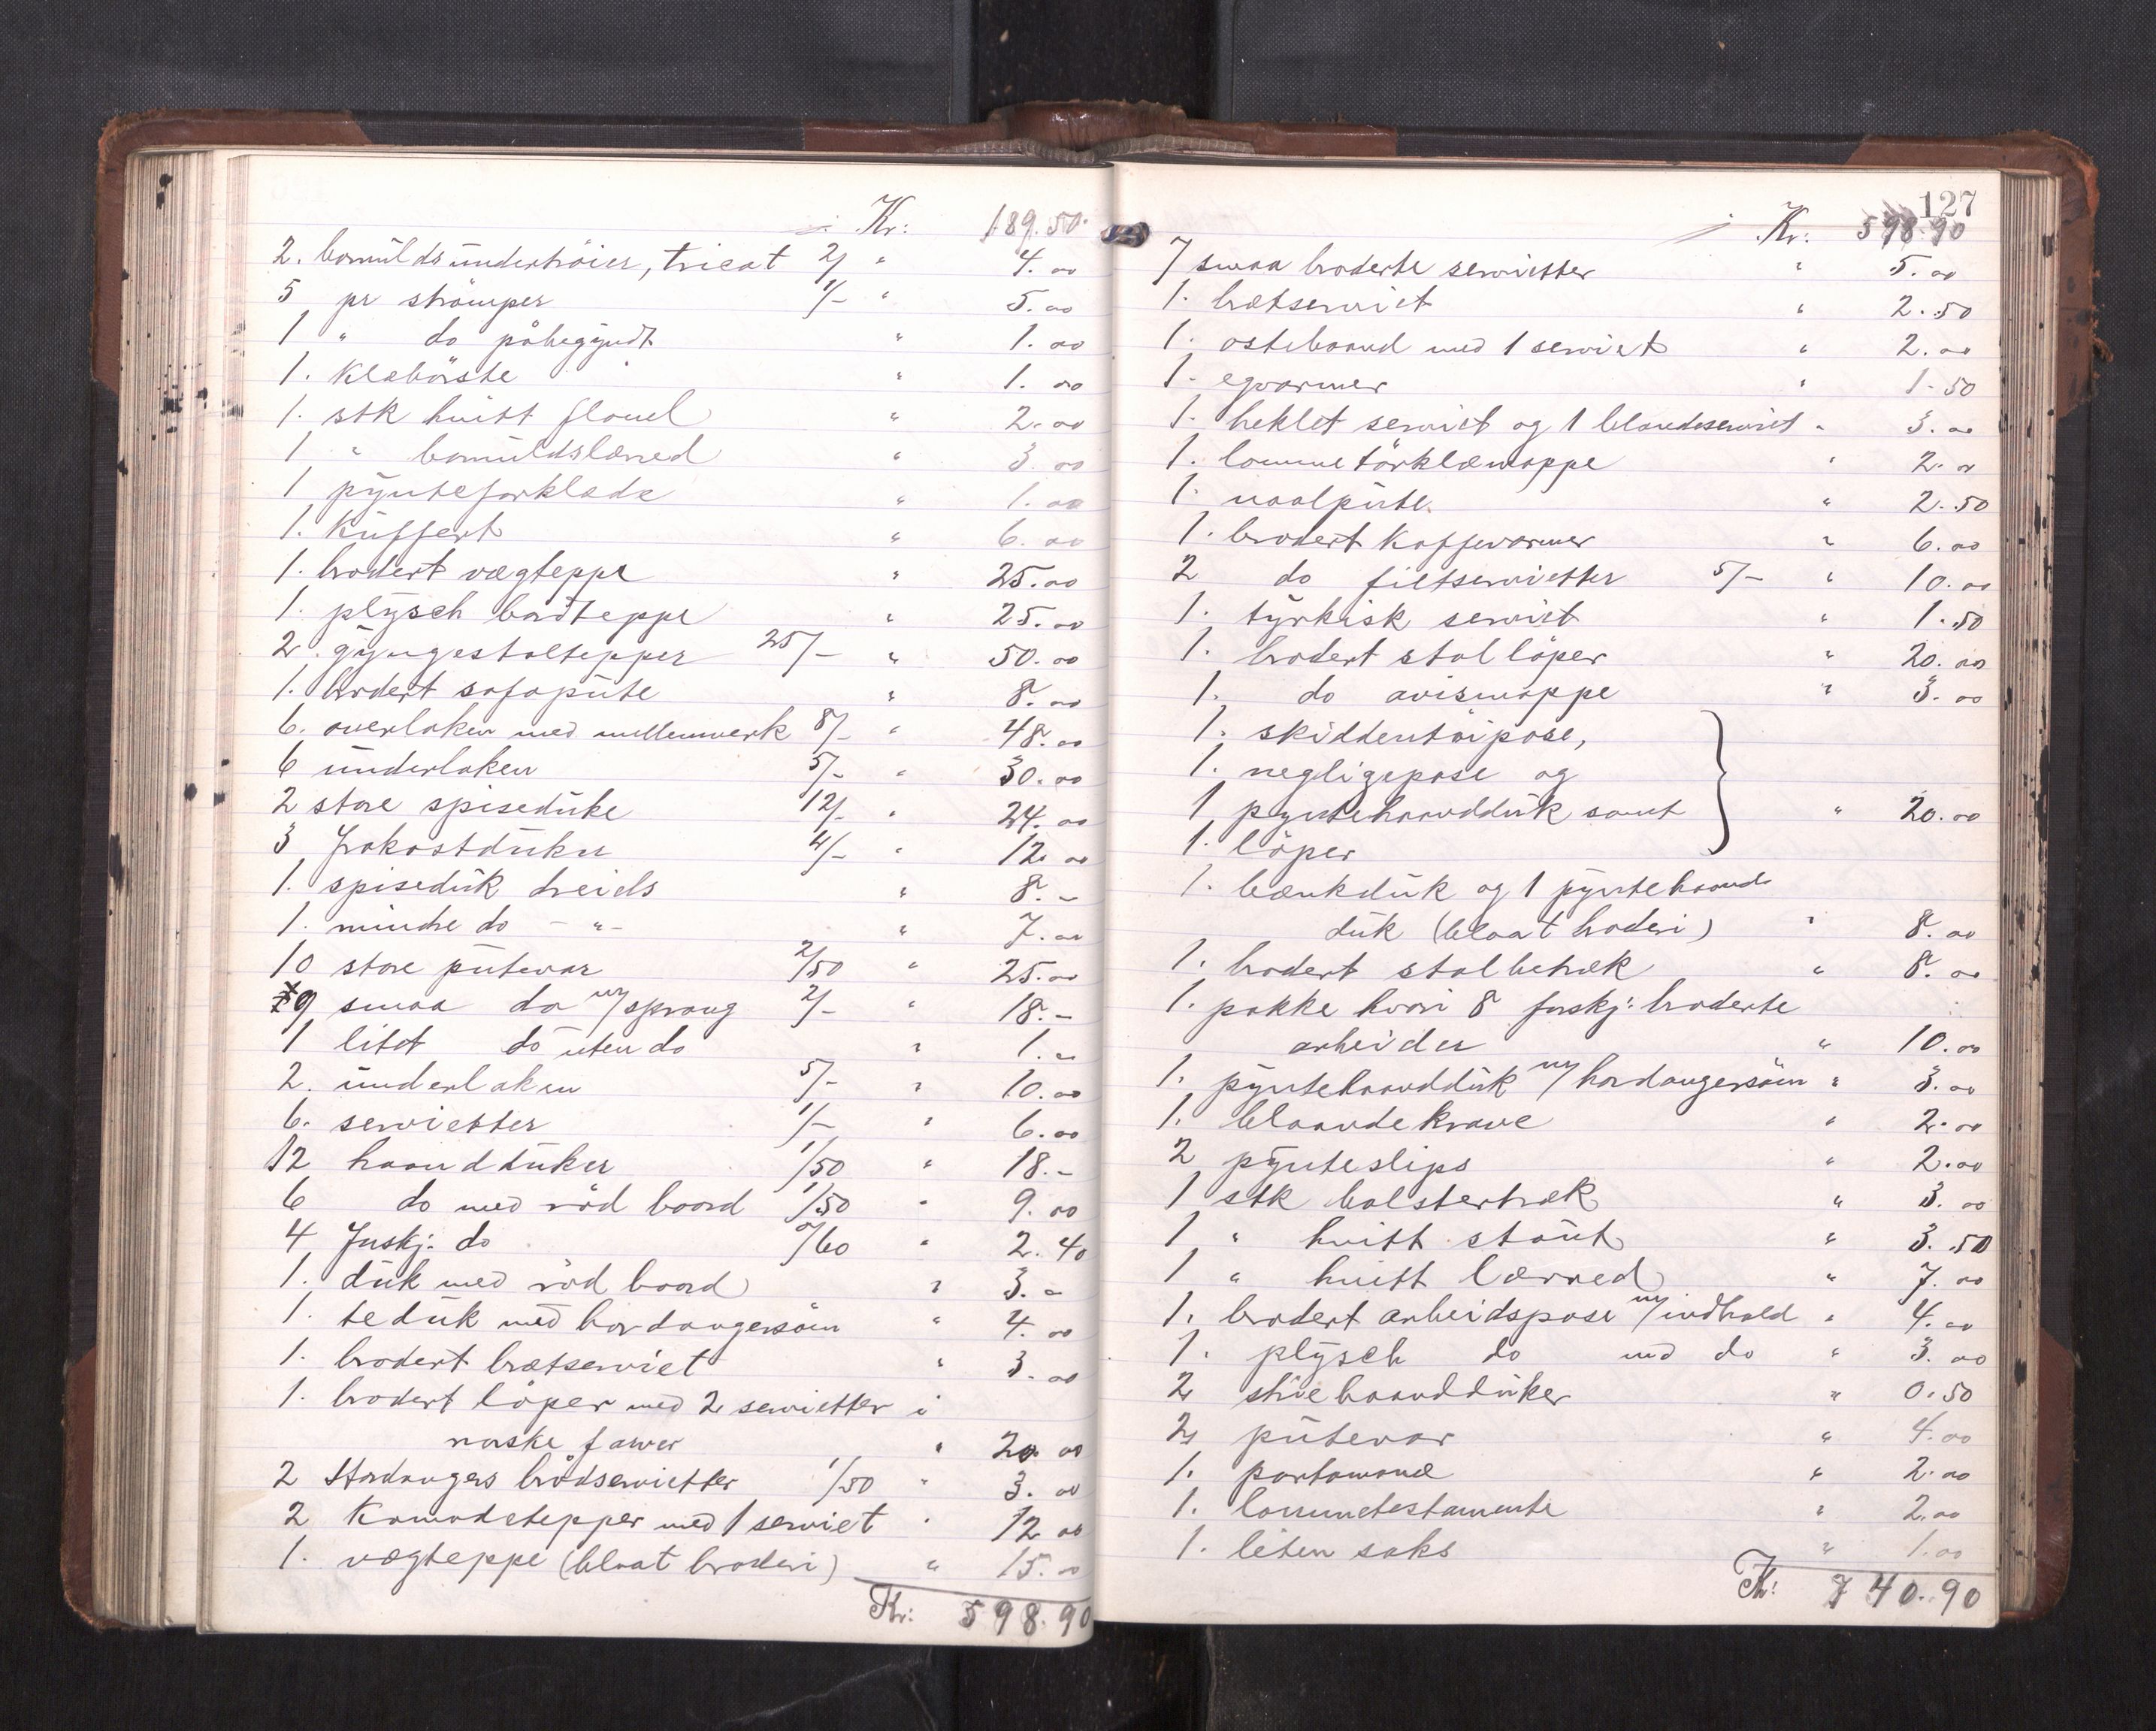 Kr: 189.50
2. bomuldsundertröier, tricot 2/ " 4.00
5 pr strömper 1/- " 5.00
1 " do påbegyndt " 1.00
1. Klæbörste " 1.00
1. stk hvitt flonel " 2.00
1 " bomuldslærred " 3.00
1 pynteforklæde " 1.00
1. Kuffert " 6.00
1. brodert vægteppe " 25.00
1. plysch bordteppe " 25.00
2. gyngestoltepper 25/- " 50.00
1. brodert sofapute " 8.00
6. overlaken med mellemverk 8/- " 48.00
6 underlaken 5/- " 30.00
2 store spiseduke 12/- " 24.00
3 frokostduker 4/- " 12.00
1. spiseduk dreiels " 8.-
1. mindre do - " - " 7.00
10 store putevar 2/50 " 25.00
9 smaa do m/ sprang 2/- " 18.-
1 litet do uten do " 1.00
2. underlaken 5/- " 10.00
6. servietter 1/- " 6.00
12 haandduker 1/50 " 18.-
6 do med röd boord 1/50 " 9.00
4 forskj. do 0/60 " 2.40
1. duk med röd boord " 3.-
1. teduk med hardangersöm " 4.00
1. brodert brætserviet " 3.00
1. brodert löper med 2 servietter i
norske farver " 20.00
2 Hardangers brödservietter 1/50 " 3.00
2 Komodetepper med 1 serviet " 12.00
1. vægteppe (blaat broderi) " 15.00
Kr: 598.90
127
Kr: 598.90
7 smaa broderte servietter " 5.00
1. brætserviet " 2.50
1. ostebaand med 1 serviet " 2.00
1. egvarmer " 1.50
1. heklet serviet og 1 blondeserviet " 3.00
1. lommetörklæmappe " 2.00
1. naalpute " 2.50
1. brodert Kaffevarmer " 6.00
2 do filtservietter 5/- " 10.00
1. tyrkisk serviet " 1.50
1. brodert stollöper " 20.00
1. do avismappe " 3.00
1. skiddentöipose,
1. negligepose og
1 pyntehaandduk samt " 20.00
1. löper
1. bænkduk og 1 pyntehaand-
duk (blaat broderi) " 8.00
1. brodert stolbetræk " 8.00
1. pakke hvori 8 forskj. broderte
arbeider " 10.00
1. pyntehaandduk m/ hardangersöm " 3.00
1. blondekrave " 2.00
2 pynteslips " 2.00
1 stk bolstertræk " 3.00
1 " hvitt stout " 3.50
1 " hvitt lærred " 7.00
1. brodert arbeidspose m/ indhold " 4.00
1. plysch do med do " 3.00
2 striehaandduker " 0.50
2 putevar " 4.00
1. portomoné " 2.00
1. lommetestamente " 2.00
1. liten saks " 1.00
Kr: 740.90